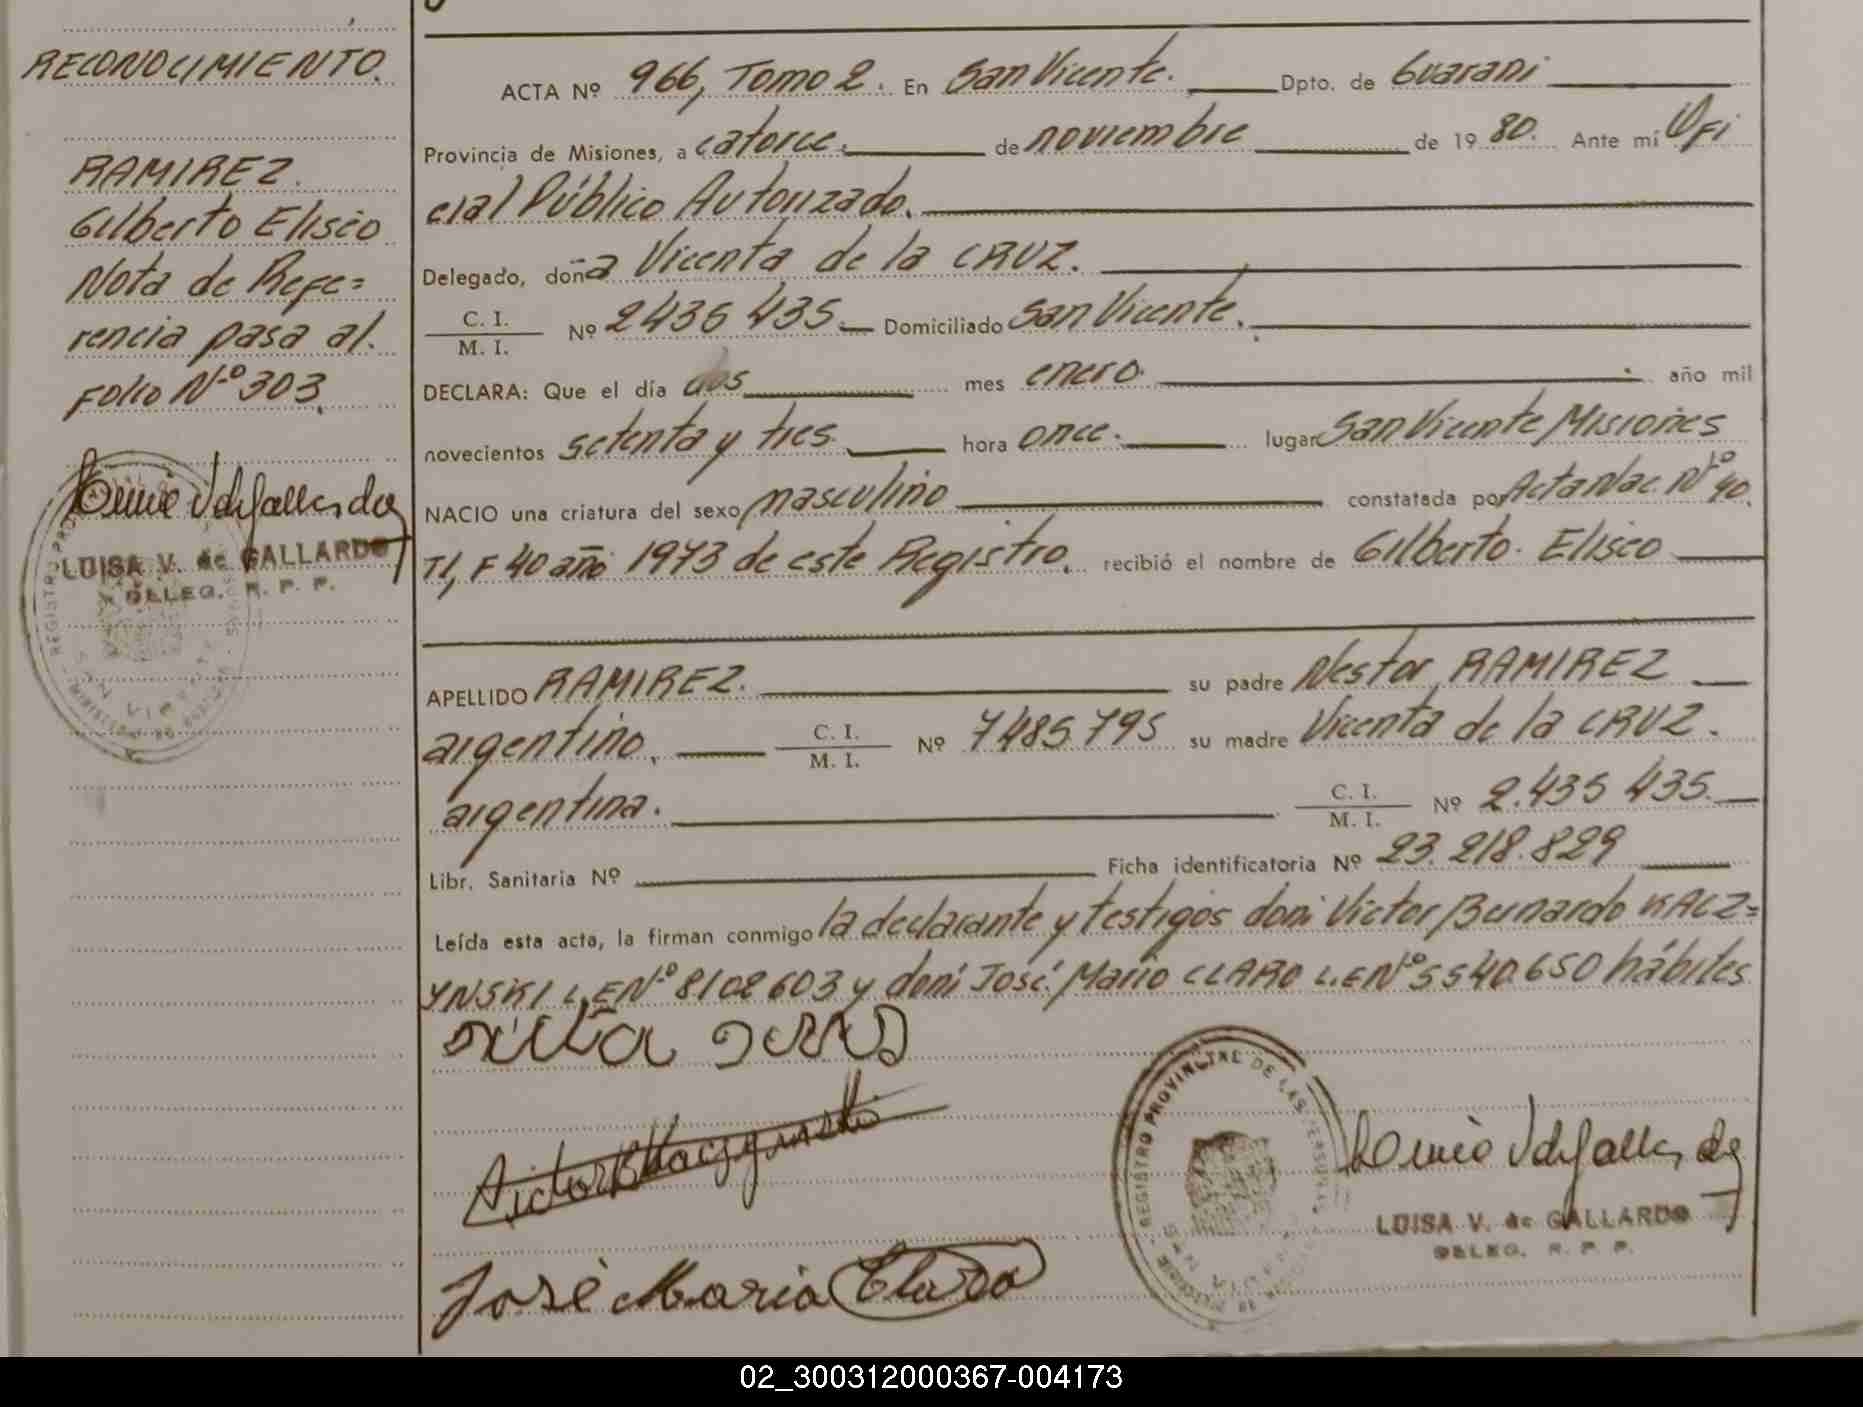 RECONOCIMIENTO.
RAMIREZ.
Gilberto Eliseo
Nota de Refe=
rencia pasa al.
Folio Nº 303.
LUISA V. de GALLARDO
DELEG. R. P. P.
ACTA Nº 966, Tomo 2. En San Vicente. Dpto. de Guarani
Provincia de Misiones, a catorce. de noviembre de 1980. Ante mí Ofi
cial Público Autorizado.
Delegado, doña Vicenta de la CRUZ.
C. I.
M. I. Nº 2435 435. Domiciliado San Vicente.
DECLARA: Que el día dos mes enero. año mil
novecientos setenta y tres. hora once. lugar San Vicente Misiones
NACIO una criatura del sexo masculino constatada por Acta Nac. Nº 40.
T1, F 40 año 1973 de este Registro. recibió el nombre de Gilberto. Eliseo
APELLIDO RAMIREZ. su padre Nestor RAMIREZ
argentino. C. I.
M. I. Nº 7485.795 su madre Vicenta de la CRUZ.
argentina. C. I.
M. I. Nº 2.435 435.
Libr. Sanitaria Nº Ficha identificatoria Nº 23.218.829
Leída esta acta, la firman conmigo la declarante y testigos don: Victor Bernardo KACZ=
YNSKI L.E Nº 8102603 y don: José Mario CLARO L.E Nº 5540.650 hábiles
Victor B Kaczynski
José Maria Claro
REGISTRO PROVINCIAL DE LAS PERSONAS
SAN VICENTE
LUISA V. de GALLARDO
DELEG. R. P. P.
02_300312000367-004173